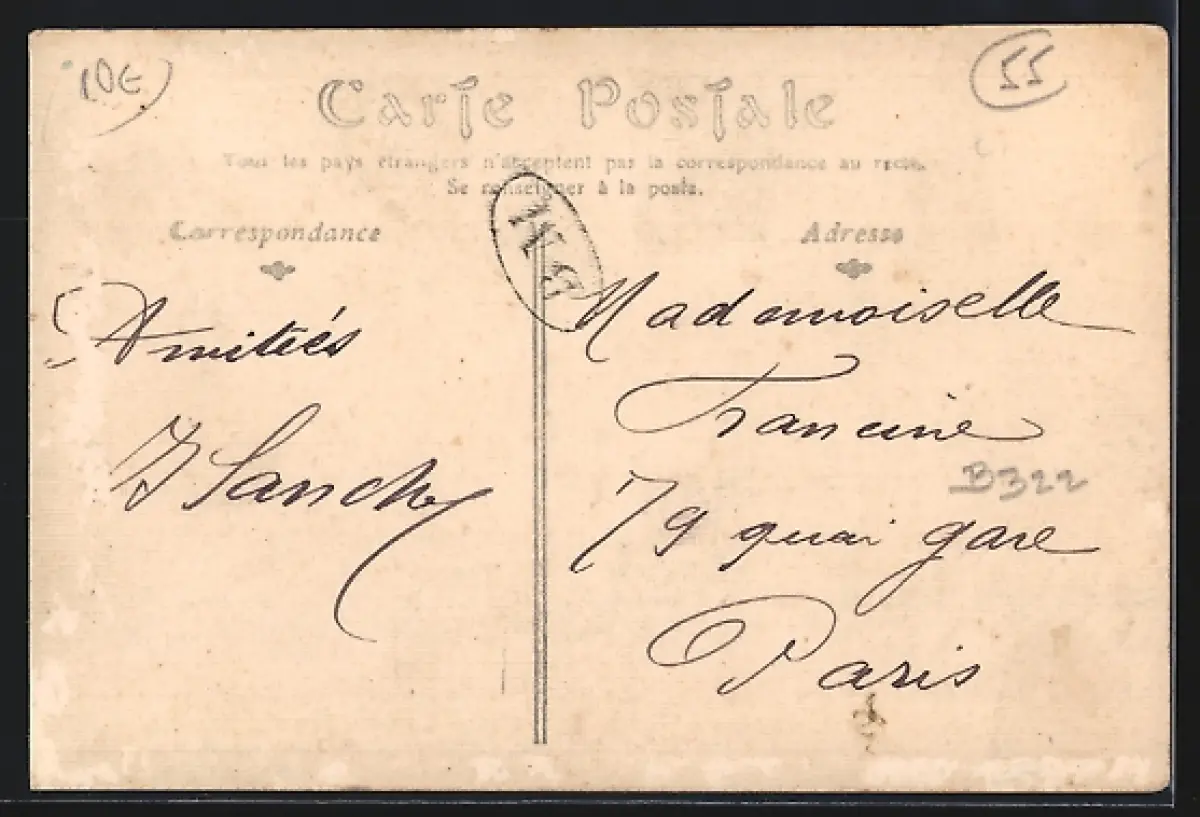 10€
55
Carte Postale
Tous les pays étrangers n'acceptent pas la correspondance au recto.
Se renseigner à la poste.
Correspondance
Adresse
Amitiés
Mademoiselle
Francine
B322
79 quai gare
Paris